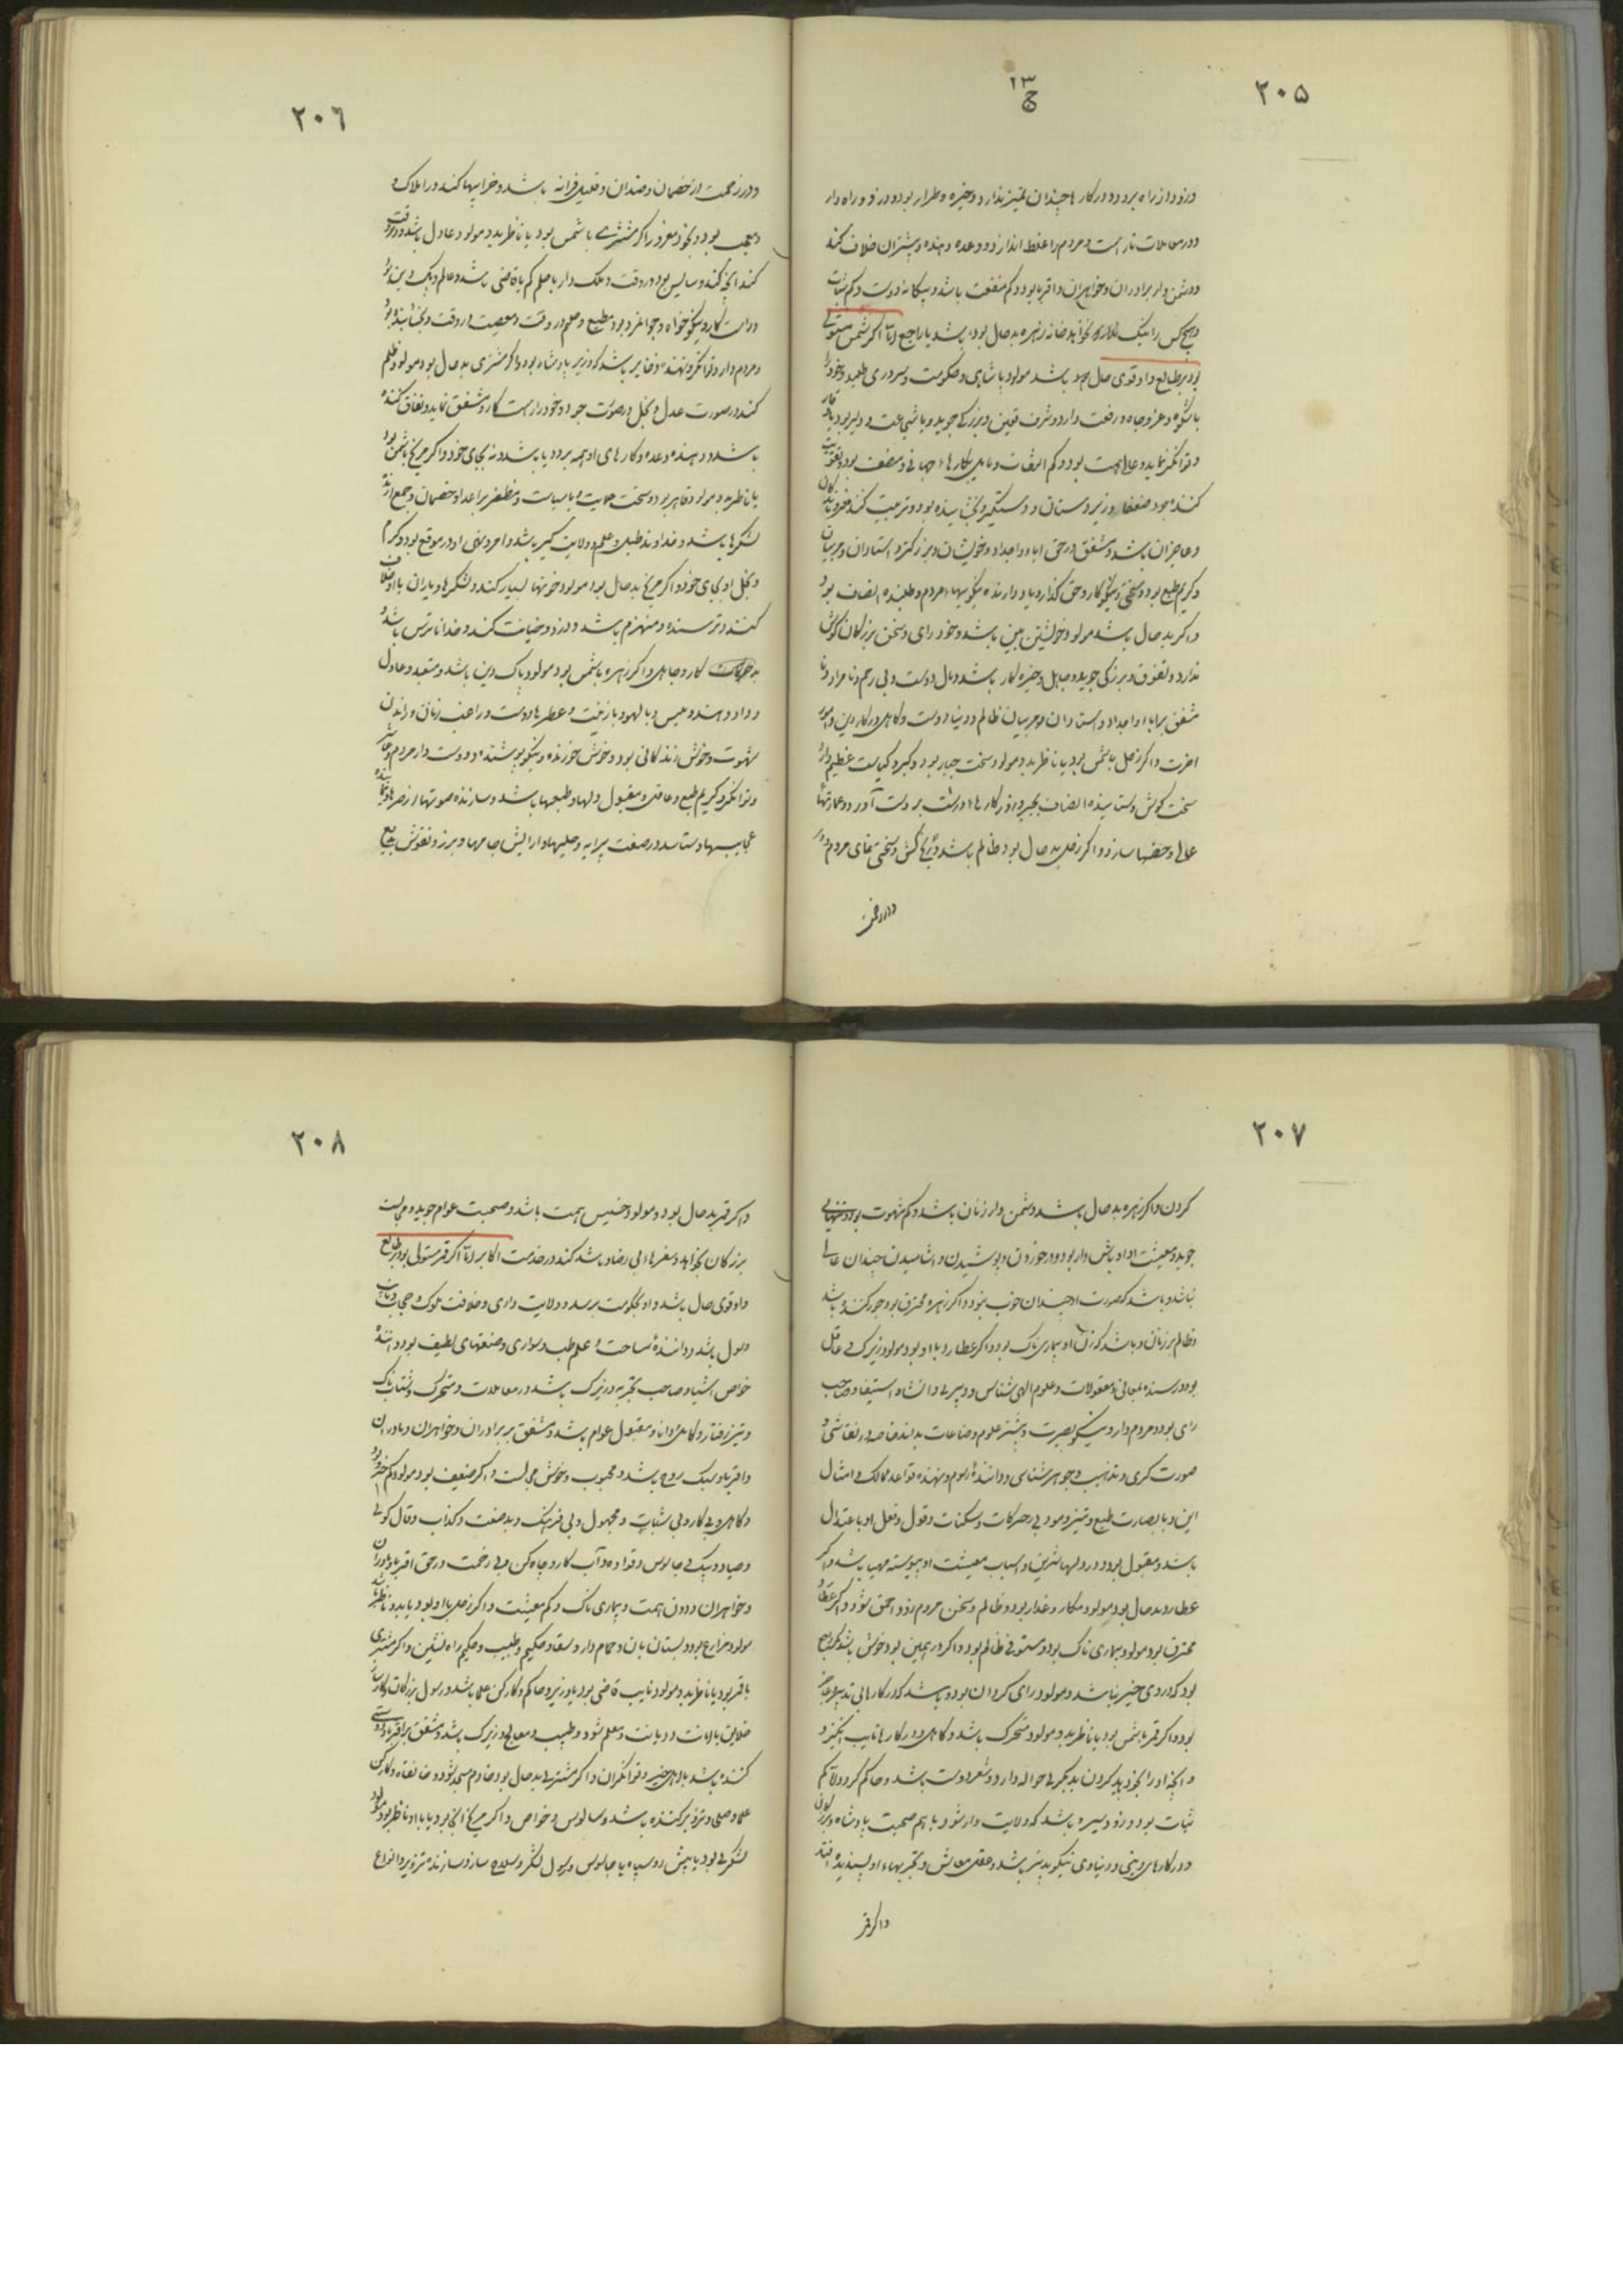 ۲۰۵
ج ۱۳
و زود از راه برود و در کارها چندان تمیز ندارد و خیره و طرار بود و دزد و راه دار
و در معاملات ناراست و مردم را غلط اندازد و وعده دهنده و بیشتر آن خلاف کند
و دشمن دار برادران و خواهران و اقربا بود و کم منفعت باشد و بیگانه دوست و کم ثبات
و هیچ کس را نیک نخواهد خانه زهره بد حال بود باشد یا راجع اما اگر شمس مستولی
بود بر طالع و او قوی حال بود باشد مولود پادشاهی و حکومت و سروری طلبد و خود را
با شکوه و عز و جاه و رفعت دارد و شرف قرین و بزرگی جوید و با شجاعت و دلیر بود با وقار
و توانگر نماید و عالی همت بود و کم التفات و مایل بکارهاء جهانی و منصف بود و تقویت
کننده بود ضعفا و زیردستان و دستگیر و بخشاینده بود و تربیت کند فرزندان
و عاجزان باشد و مشفق در حق اباء و اجداد و خویشان و بزرگتر و استادان و مربیان
و کریم طبع بود و سخی و نیکوکار و حق گذار و یاد دارنده نیکوییهاء مردم و طلبنده انصاف بود
و اگر بد حال باشد مولود خویشتن بین باشد و خود رای و سخن بزرگان گوش
ندارد و تفوق و بزرگی جوید و جاهل و خیره کار باشد و مال دوست و بی رحم و نامراد و نا
مشفق بر اباء و اجداد و استادان و مربیان ظالم و دنیا دوست و کاهل در کار دین و امور
آخرت و اگر زحل با شمس بود یا ناظر بدو مولود سخت جبار بود و کبر و کیاست عظیم دارد
سخت کوش و ستاینده انصاف بجبر و زور کارهاء درشت بر دست آورد و عمارتهاء
عالی و حصنها سازد و اگر زحل بد حال بود ظالم باشد و کش و سخن مردم
و در زحمت
۲۰۶
و در زحمت از خصمان و ضدان و قلیل فرزانه باشد و خرابیها کند در املاک و
معجب بود و بخود مغرور اگر مشتری با شمس بود یا ناظر بدو مولود عادل باشد و در وقت
راست کار و نیکو خواه و جوانمرد بود مطیع و حلم در وقت و معصیت در وقت و بخشاینده بود
و مردم دار و توانگر و نهنده ذخایر باشد که وزیر پادشاه بود و اگر مشتری بد حال بود مولود ظلم
کند در صورت عدل و بخل در صورت جود و خود را راست کار و مشفق نماید و نفاق کننده
باشد و دهنده وعده و کارهای او همه بر ریا باشد و نه بجای خود و اگر مریخ با شمس بود
یا ناظر بدو مولود قاهر بود و سخت حمایت و با سیاست و مظفر بر اعدا و خصمان و جمع آرنده
لشکرها باشد و خداوند طبل و علم و ولایت گیر باشد و امر و نهی او در موقع بود و کرم
و بخل او بجای خود و اگر مریخ بد حال بود مولود خونها بسیار کند و لشکرها و یاران با او خلاف
کنند و ترسنده و منهزم باشد و دزد و خیانت کند و خدا ناترس باشد و
بد حرکات کار و جاهل و اگر زهره با شمس بود مولود پاک دین باشد و متعبد و عادل
و داد دهنده و عیس و با لهو و بازینت و عطرها دوست و راغب زنان و راندن
شهوت و خوش زندگانی بود و خوش خورنده و نیکو پوشنده و دوست دار مردم
و توانگر و کریم طبع و عاقل و مقبول دلها و طبعها باشد و سازنده صوتها و زمرها
عجایبها و ستاسد در صنعت پیرایه و حلیها و آرایش جامها و برز و نقوش بدیع
۲۰۷
کردن و اگر زهره بد حال باشد دشمن دار زنان باشد و کم شهوت بود و تنهایی
جوید و معیشت او اوباش وار بود و در خوردن و پوشیدن و اشامیدن چندان عالی
نباشد و باشد که صورت او چندان خوب نبود و اگر زهره محترق بود جور کننده باشد
و ظالم بر زنان و باشد که زن او بیماری ناک بود و اگر عطارد با او بود مولود زیرک و عاقل
بود و رسنده بمعانی و معقولات و علوم الهی شناس و دبیری و انشا و استیفا و صاحب
رای بود و مردم دار و نیکو بصیرت و بیشتر علوم و صناعات بداند خاصه نقاشی و
صورت گری و تذهیب و جواهر شناسی و دانندۀ رسوم و نهنده قواعد ممالک و امثال
این و با بصارت طبع و تمیز و مودب در حرکات و سکنات و قول و فعل او با عتدال
باشد و مقبول بود و در دلها شیرین و اسباب معیشت او پیوسته مهیا باشد و اگر
عطارد بد حال بود مولود مکار و غدار بود و ظالم و سخن مردم دزد و احمق شود و اگر عطارد
محترق بود مولود بیماری ناک بود و مستوفی ظالم بود و اگر در همین بود خوش باشد و اگر راجع
بود که در وی خیر نباشد و مولود رای گردان بود و باشد که در کارها بی تدبیر و عاجز
بود و اگر قمر با شمس بود یا ناظر بدو مولود متحرک باشد و کاهل و در کارها نایب انگیزد
و آنچه او را بخود باید کردن بدیگری حواله دارد و شعر دوست باشد و حاکم گردد لا کم
ثبات بود و زود سیر و باشد که ولایت دار شود با هم صحبت پادشاه و بزرگان
و در کارهای دینی و دنیاوی نیکو پذیر باشد و عقل معاش و تجربهاء او پسندیده افتد
و اگر قمر
۲۰۸
و اگر قمر بد حال بود و مولود خسیس همت باشد و صحبت عوام جوید و مجالست
بزرگان نخواهد و سفرهاء بی رضا و باشد کند در خدمت اکابر اما اگر قمر مستولی بود بر طالع
و او قوی حال باشد و او بحکومت برسد و ولایت داری و خلافت ملوک و حجابت
و رسول باشد و دانندۀ مساحت و علم طب و سواری و صنعتهای لطیف بود و دانندۀ
خواص اشیا و صاحب تجربه و زیرک باشد و در معاملات و متحرک و شتاب ناک
و تیز رفتار و کاهل و دانا و مقبول عوام باشد و مشفق بر برادران و خواهران و مادران
و اقربا و سبک روح باشد و محبوب و خوش مجالست و اگر ضعیف بود مولود کم خرد بود
و کاهل و بی کار و بی ثبات و مجهول و بی فرهنگ و بد صنعت و کذاب و فال گوی
و صیاد و پیک و جاسوس و قواده و آب کار و چاه کن و بی رحمت در حق اقربا و مادران
و خواهران و دون همت و بیماری ناک و کم معیشت و اگر زحل با او بود یا بدو ناظر باشد
مولود مزارع بود و بستان بان و حمام دار و سقا و حکیم و طبیب و حکیم راه نشین و اگر مشتری
با قمر بود یا ناظر بدو مولود نایب قاضی بود یا وزیر و حاکم و کارکن علما باشد و رسول بزرگان و کارساز
خلایق با امانت و دیانت و معلم شود و طبیب و معالج و زیرک باشد و مشفق بر اقربا و دوستی
کننده باشد با اهل خیر و توانگران و اگر مشتری بد حال بود خادم مسجد بود و خانقاه و کارکن
علما و صلحا و تزویر کننده باشد و سالوس و خواص و اگر مریخ آنجا بود یا با او ناظر بود مولود
لشکری بود یا پیش رو سپاه یا جاسوس و رسول لشکر و سلاح ساز و سازنده تزویر و انواع